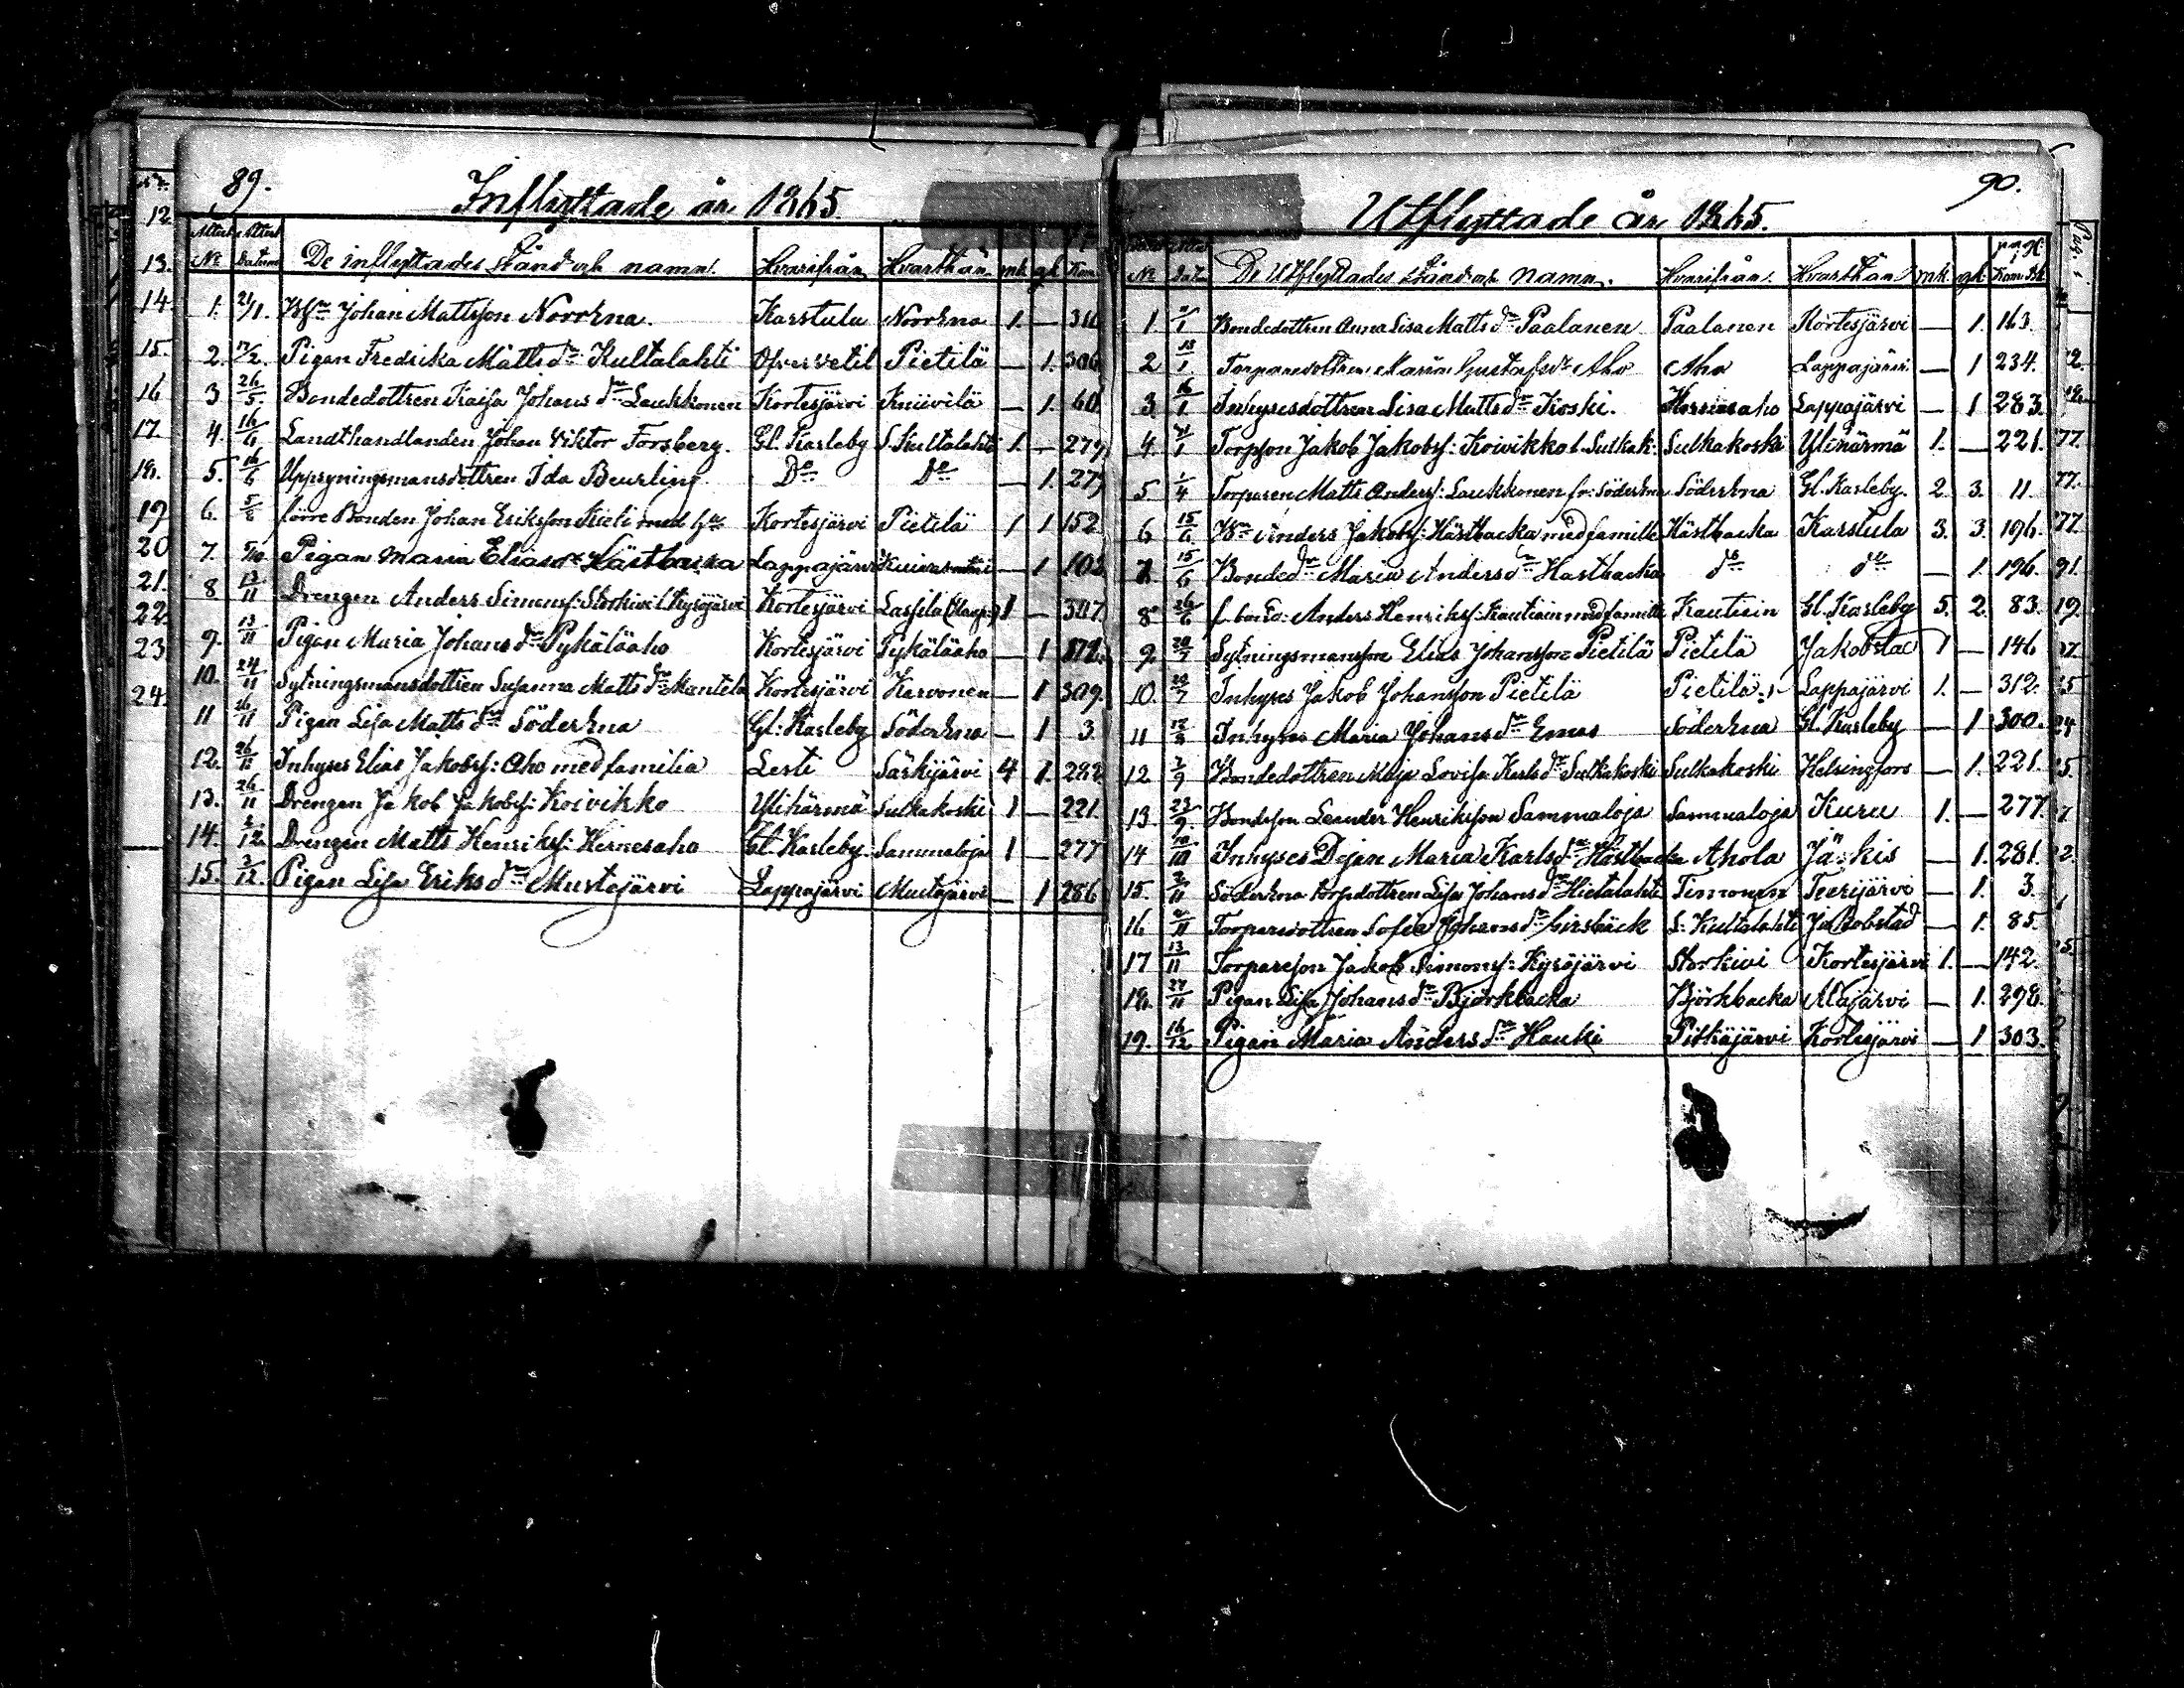 89.
Inflyttade år 1865.
No Datum De inflyttades stånd och namn. Hvarifrån Hvarthän mk. qk.
1. 21/1. Johan Mattsson Norrena. Karstula Norrena 1. —
2. Pigan Fredrika Matts dr Kultalahti Öfvervetil Pietilä — 1. 306
3 26/5. Bondedottren Kaisa Johans dr Laukkonen Kortesjärvi Kniivilä — 1. 60.
4. 16/6 Landthandlanden Johan Viktor Forsberg. Gl. Karleby S. Kultalahti 1. — 279
5. 16/6 Uppsyningsmansdottren Ida Beurling. Do Do — 1. 279
6. 5/8 förre Bonden Johan Eriksson med Kortesjärvi Pietilä 1 1 152
7. 5/10 Pigan Maria Elias dr Hästbacka Lappajärvi — 1 102
8 13/11 Drengen Anders Simonss: Storkivi l. Kyröjärvi Kortesjärvi Lassila 1 — 307.
9. 13/11 Pigan Maria Johans dr Pykäläaho Kortesjärvi Pykäläaho — 1
10. 24/11 Sytningsmansdottren Susanna Matts dr Mantela Kortesjärvi Karvonen — 1 309.
11 26/11 Pigan Lisa Matts dr Söderena Gl: Karleby Söderena — 1 3
12. 26/11 Inhyses Elias Jakobss: Aho med familia Lesti Särkijärvi 4 1. 282
13. 26/11 Drengen Jakob Jakobss: Koivikko Ylihärmä Sulkakoski 1 — 221.
14. 2/12. Drengen Matts Henrikss: Hernesaho Gl. Karleby. Sammaloja 1 — 277
15. 3/12. Pigan Lisa Eriks dr Mustajärvi Lappajärvi Mustajärvi — 1 286
12
13.
14
15.
16
17.
18.
19
20
21.
22.
23
24
90.
Utflyttade år 1865.
No Dat. De Utflyttades stånd och namn. Hvarifrån. Hvarthän mk. qk.
1. Bondedottren Anna Lisa Matts dr Paalanen Paalanen Kortesjärvi — 1. 163.
2 Torparedottren Maria Gustafs dr Aho Aho Lappajärvi. — 1 234.
3. 16/1 Inhysesdottren Lisa Matts dr Koski. Hernesaho Lappajärvi — 1 283.
4. Torpson Jakob Jakobss: Koivikko l. Sulkak: Sulkakoski Ylihärmä 1. — 221.
5 1/4 Torparen Matts Anderss: Laukkonen fr: Söderena Söderena Gl. Karleby. 2. 3. 11.
6 15/6. Anders Jakobss: Hästbacka med familie Hästbacka Karstula 3. 3. 196.
7. 15/6 Bonded dr Maria Anders dr Hästbacka do do — 1. 196.
8 26/6 f. bonden Anders Henrikss: Kautiain med familie Kautiain Gl. Karleby 5. 2. 83.
9. Sytningsmansson Elias Johansson Pietilä Pietilä Jakobstad 1 — 146
10. Inhyses Jakob Johansson Pietilä Pietilä. Lappajärvi 1. — 312.
11 Inhyses Maria Johans dr Emas Söderena Gl. Karleby — 1 300.
12 2/9 Bondedottren Maja Lovisa Karls dr Sulkakoski Sulkakoski Helsingfors — 1. 221.
13. 23/9. Bondeson Leander Henriksson Sammaloja Sammaloja Kuru 1. — 277.
14 10/10 Inhyses Dejan Maria Karls dr Hästbacka Ahola — 1. 281.
15. 2/11 Söderena torpdottren Lisa Johans dr Hietalahti Timonen Teerijärvi — 1. 3.
16 Torparedottren Sofia Johans dr S: Kultalahti Jakobstad — 1. 85.
17 13/11 Torpareson Jakob Simonss: Kyröjärvi Storkivi Kortesjärvi 1. — 142.
18. 27/11 Pigan Lisa Johans dr Björkbacka Björkbacka Alajärvi — 1. 298.
19. 16/12 Pigan Maria Anders dr Hauki Pitkäjärvi Kortesjärvi — 1 303.